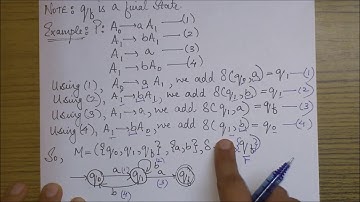 NOTE: qf is a final State.
Example: P: A₀ → aA₁ —(1)
A₁ → bA₁ —(2)
A₁ → a —(3)
A₁ → bA₀ —(4)
Using (1), A₀ → aA₁, we add δ(q₀, a) = q₁ —(1)
Using (2), A₁ → bA₁, we add δ(q₁, b) = q₁ —(2)
Using (3), A₁ → a, we add δ(q₁, a) = qf —(3)
Using (4), A₁ → bA₀, we add δ(q₁, b) = q₀ —(4)
So, M = ({q₀, q₁, qf}, {a, b}, δ, {qf})
F
b (2)
q₀ a (1) q₁ a (3) qf
b (4)